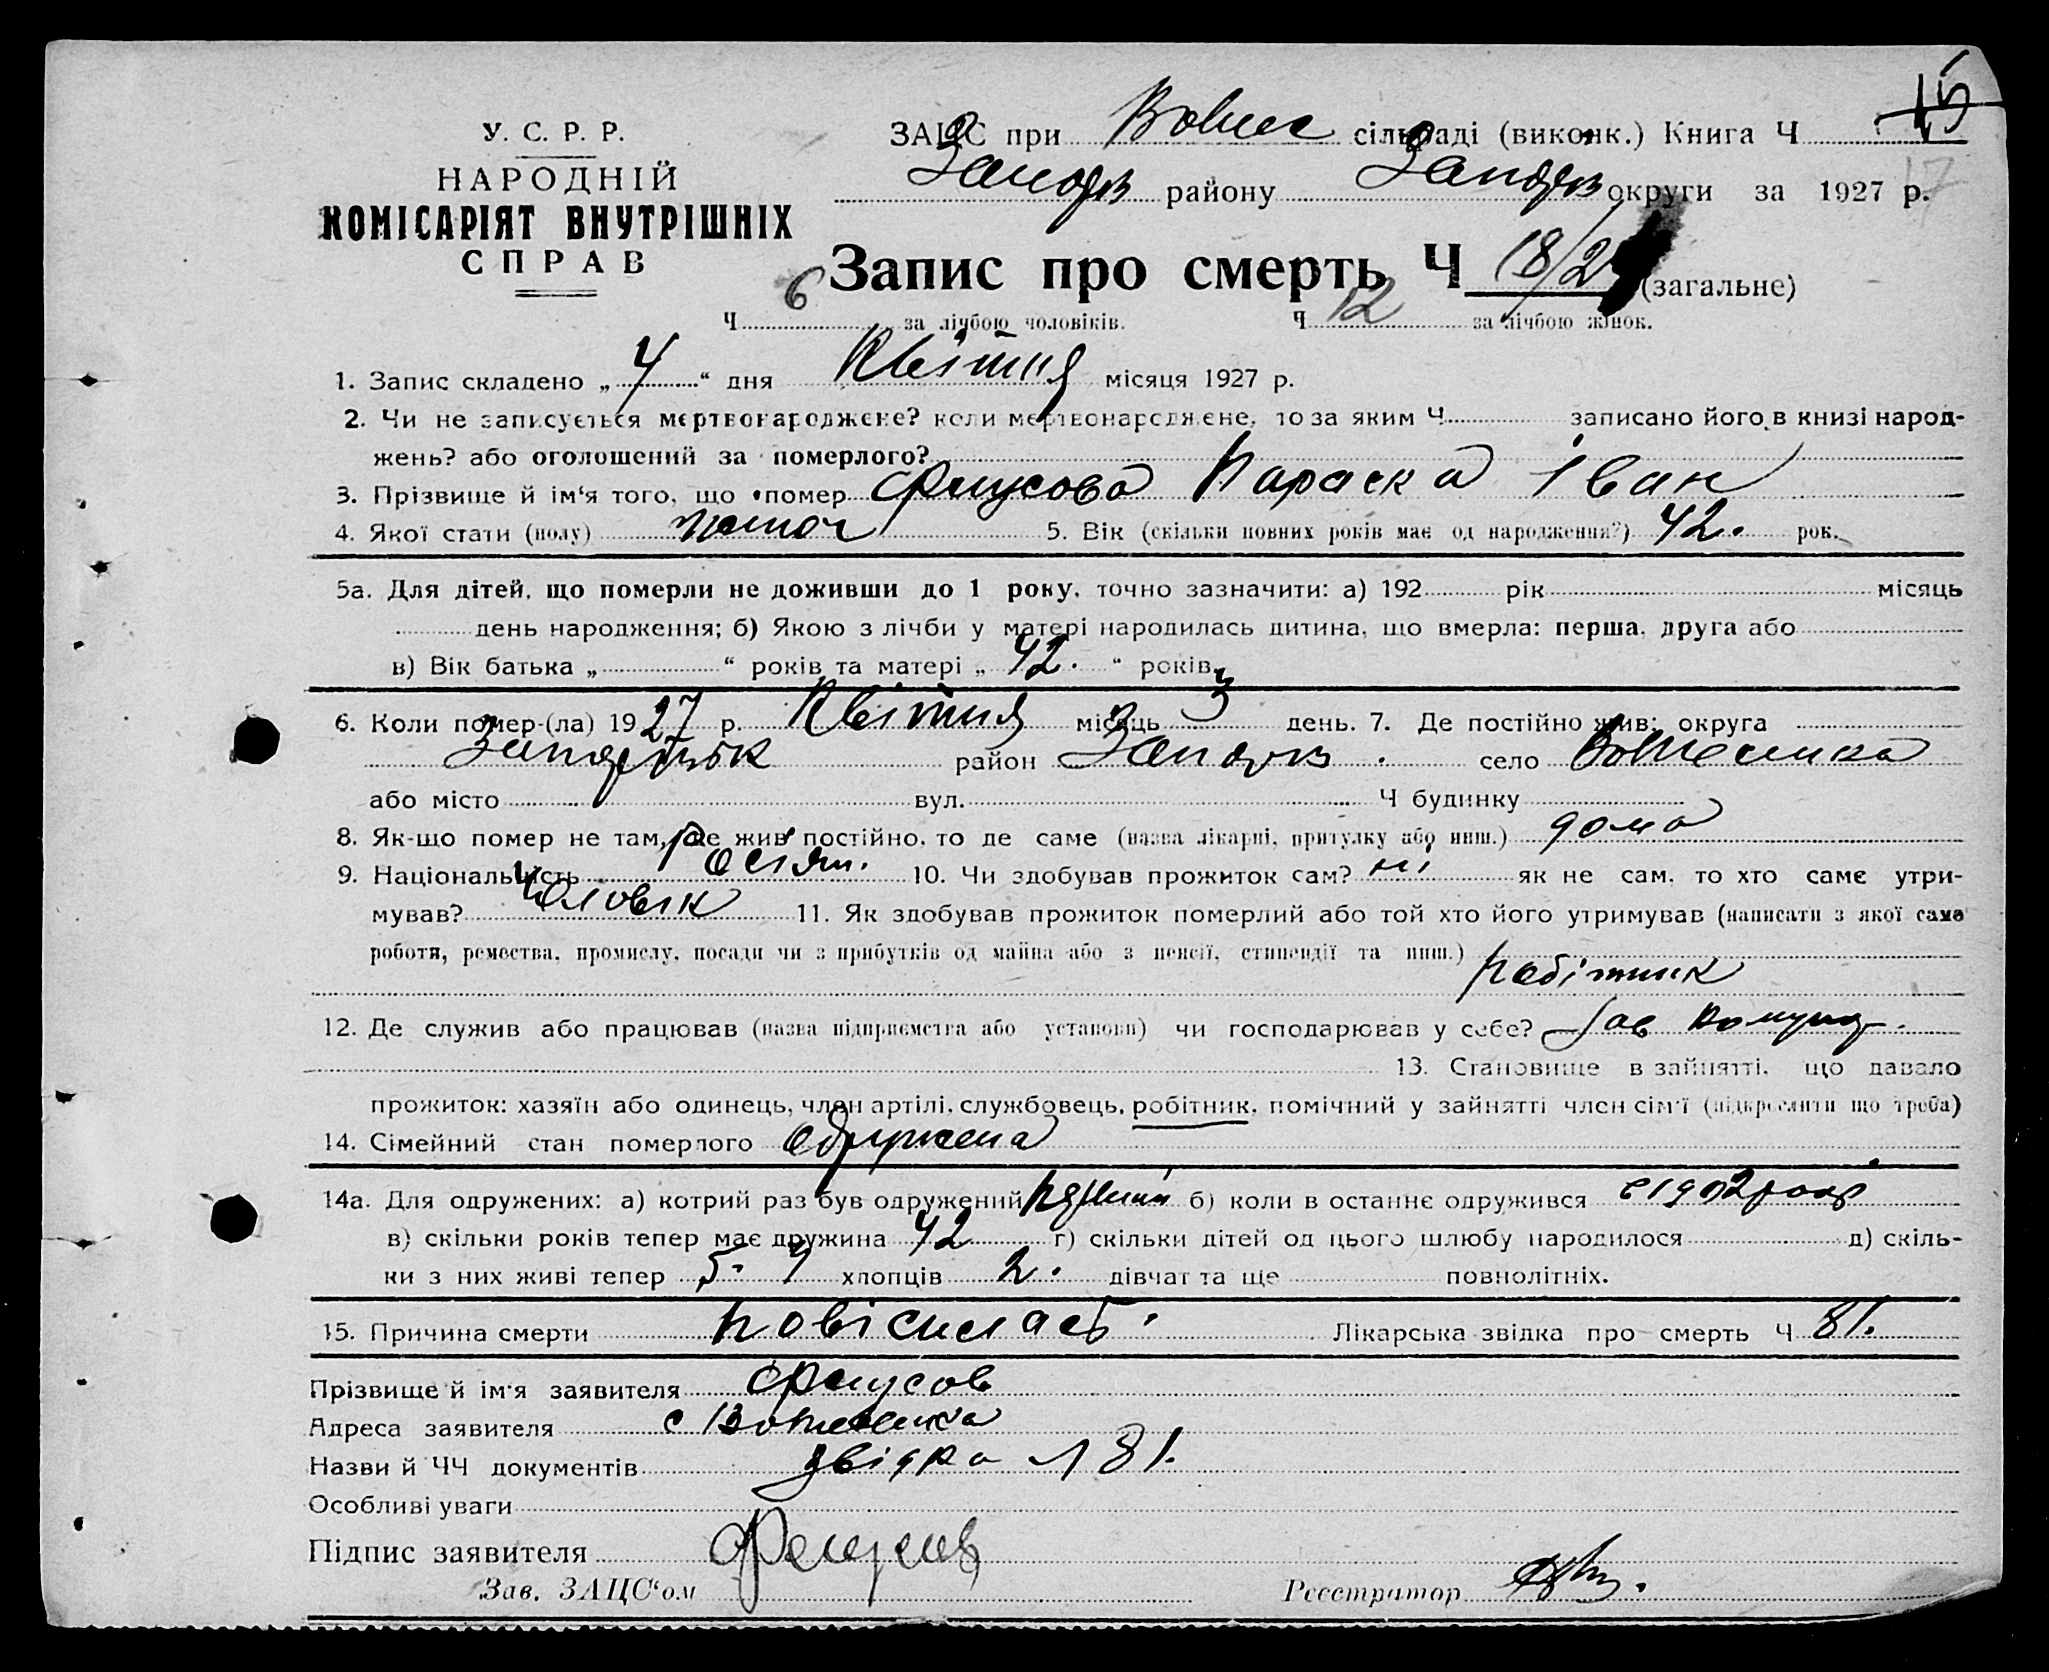 15
У. С. Р. Р.
ЗАЦС при Вознес сільраді (виконк.) Книга Ч
НАРОДНІЙ
Запоріз району Запоріз округи за 1927 р.
17
КОМІСАРІЯТ ВНУТРІШНІХ
СПРАВ
Запис про смерть Ч 18/2 (загальне)
Ч 6 за лічбою чоловіків. Ч 12 за лічбою жінок.
1. Запис складено „ 4 “ дня Квітня місяця 1927 р.
2. Чи не записується мертвонароджене? коли мертвонароджене, то за яким Ч записано його в книзі народ-
жень? або оголошений за померлого?
3. Прізвище й ім‘я того, що помер Параска Іван
4. Якої стати (полу) жіноч 5. Вік (скільки повних років має од народження?) 42. рок.
5а. Для дітей, що померли не доживши до 1 року, точно зазначити: а) 192 рік місяць
день народження; б) Якою з лічби у матері народилась дитина, що вмерла: перша, друга або
в) Вік батька „ “ років та матері „ 42. “ років
6. Коли помер-(ла) 1927 р. Квітня місяць 3 день. 7. Де постійно жив: округа
район Запоріз село
або місто вул. Ч будинку
8. Як-що помер не там, де жив постійно, то де саме (назва лікарні, притулку або инш.) дома
9. Національність Росіян. 10. Чи здобував прожиток сам? ні як не сам, то хто саме утри-
мував? Чоловік 11. Як здобував прожиток померлий або той хто його утримував (написати з якої саме
роботи, ремества, промислу, посади чи з прибутків од майна або з пенсії, стипендії та инш.)
робітник
12. Де служив або працював (назва підприємства або установи) чи господарював у себе? Зав Комунар.
13. Становище в зайнятті, що давало
прожиток: хазяїн або одинець, член артілі, службовець, робітник, помічний у зайнятті член сім‘ї (підкреслити що треба)
14. Сімейний стан померлого одружена
14а. Для одружених: а) котрий раз був одружений перший б) коли в останнє одружився с 1902 року
в) скільки років тепер має дружина 42 г) скільки дітей од цього шлюбу народилося д) скіль-
ки з них живі тепер 5. 3 хлопців 2. дівчат та ще повнолітніх.
15. Причина смерти повісилась. Лікарська звідка про смерть Ч 81.
Прізвище й ім‘я заявителя
Адреса заявителя с
Назви й ЧЧ документів звідка 81.
Особливі уваги
Підпис заявителя
Зав. ЗАЦС‘ом Реєстратор